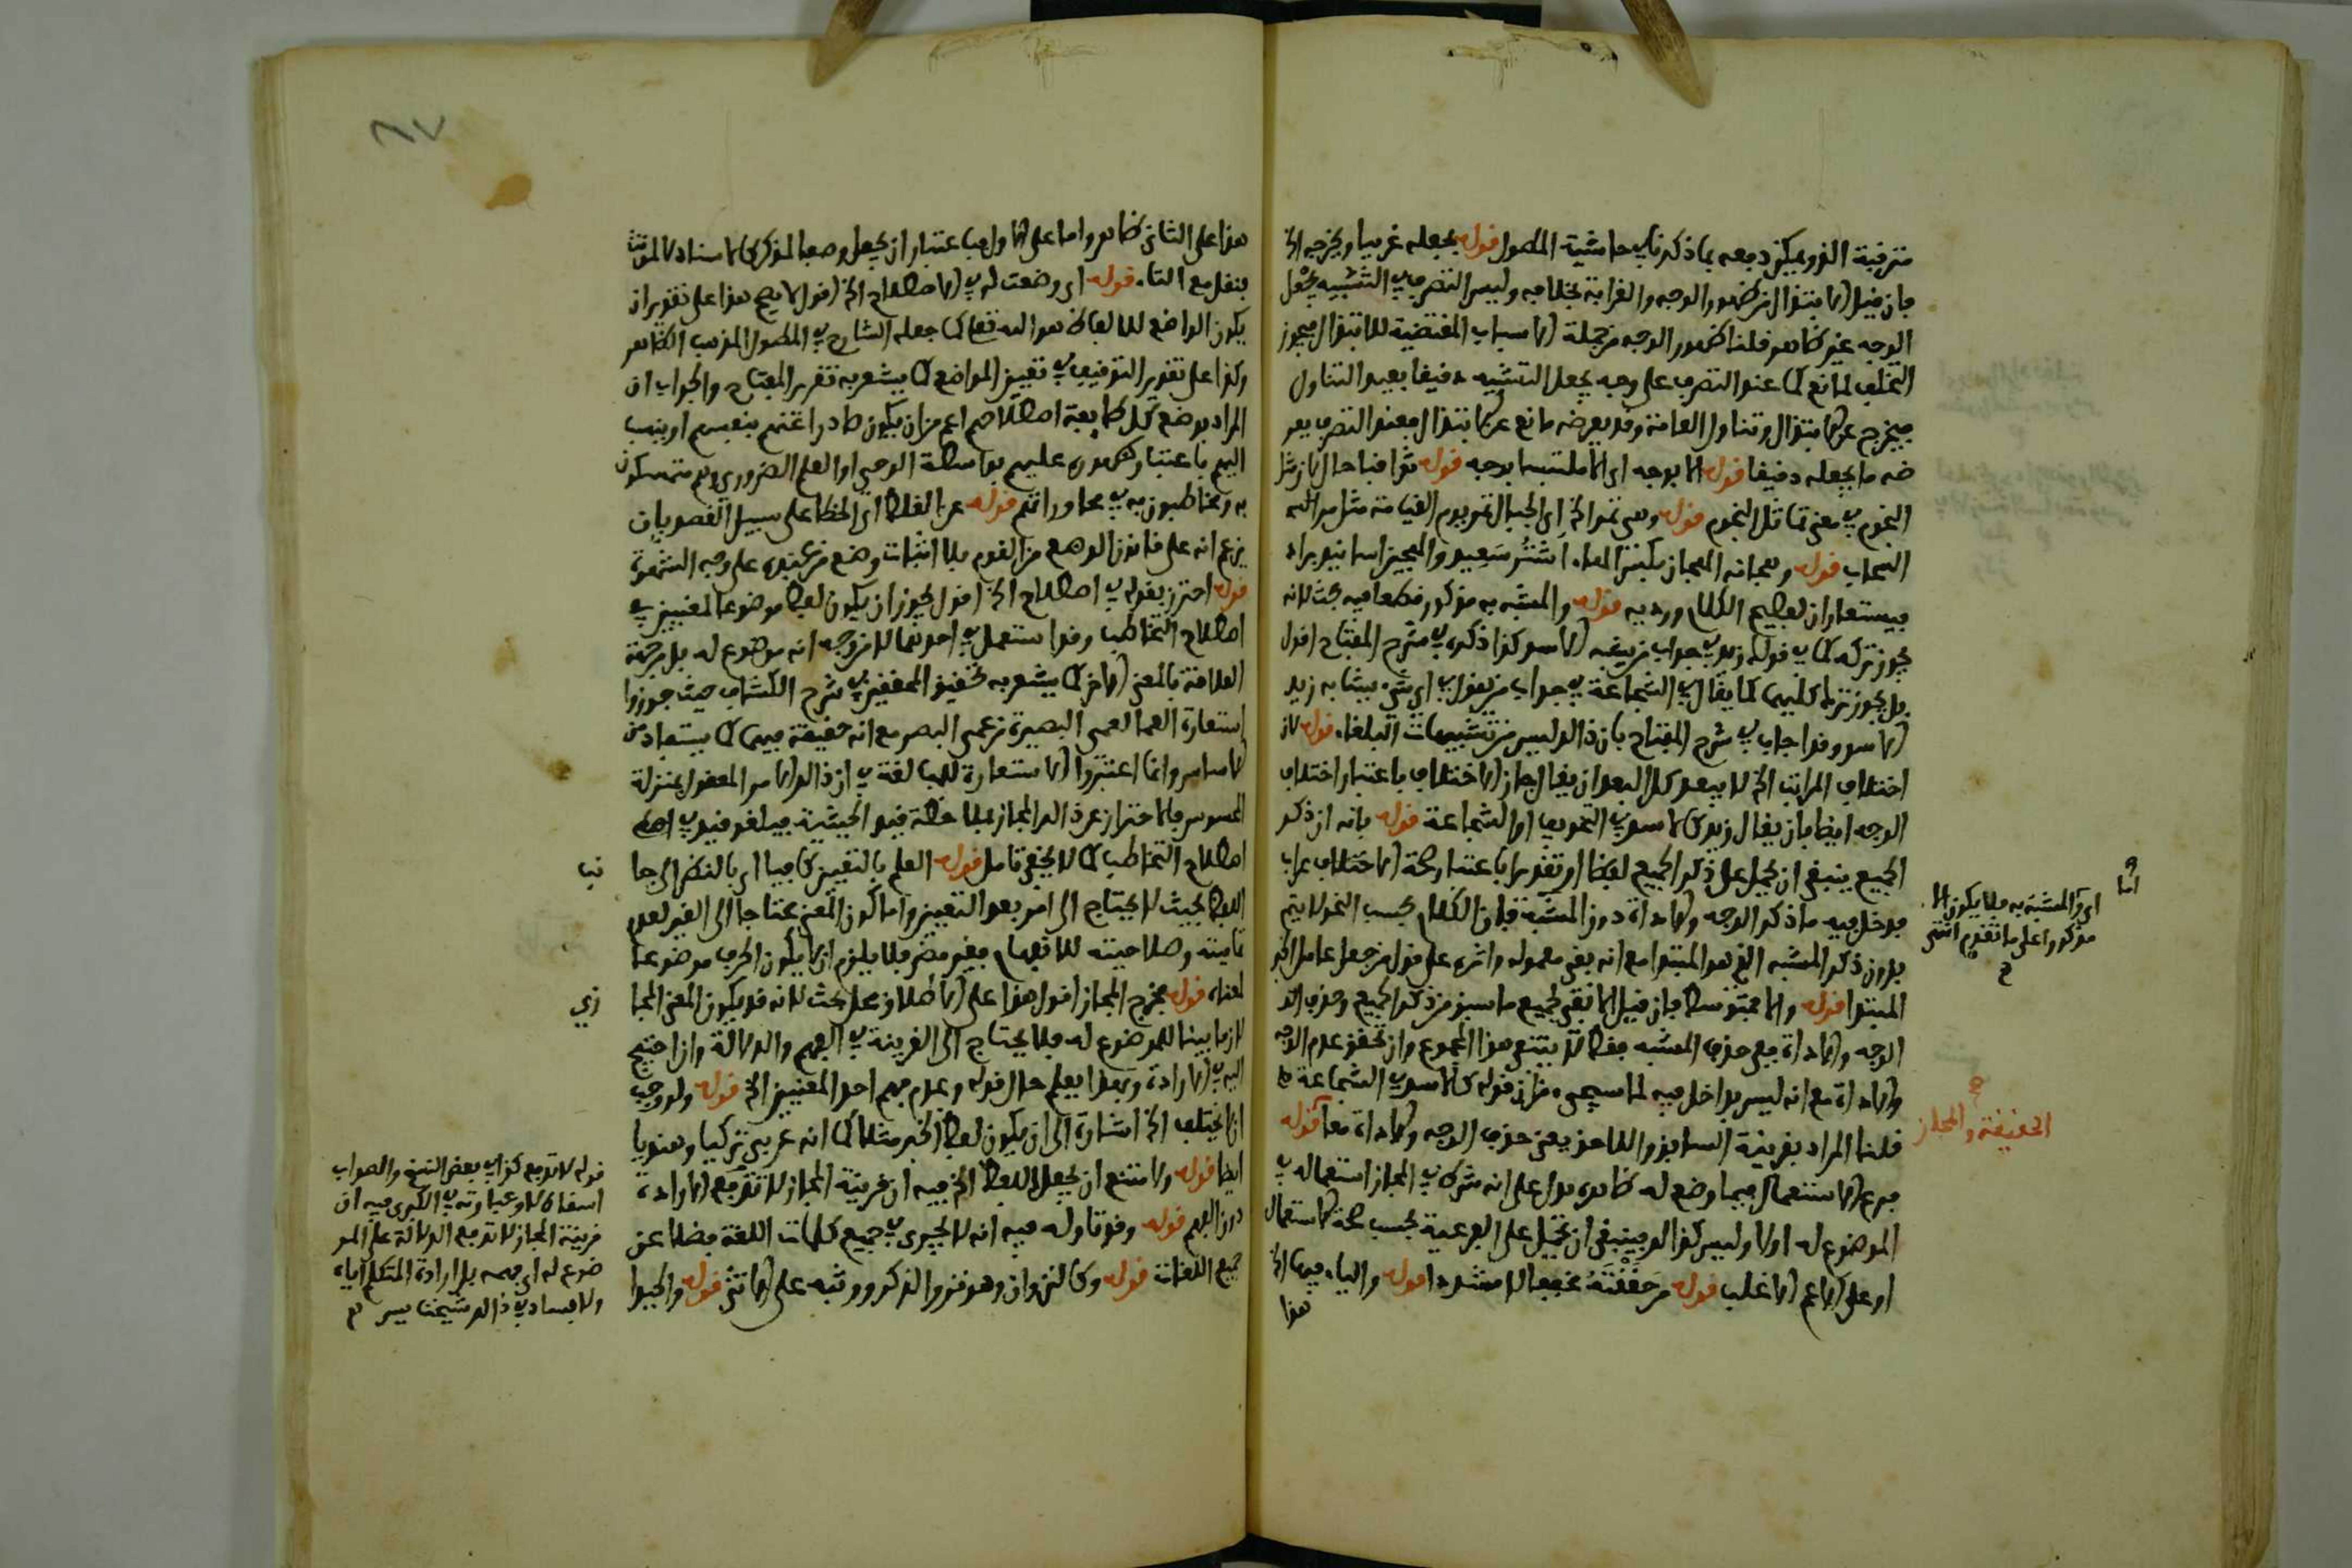 مترفية الذ ويمكن دفعه بما ذكرناه في حاشية المطول قوله بجعله غريبا ويخرجه الخ
فان قيل الابتذال من ظهور الوجه والغرابة بخلافه وليس التصرف في التشبيه بجعل
الوجه غير ظاهر قلنا ظهور الوجه من جملة الاسباب المقتضية للابتذال فيجوز
التخلف لمانع كما عند التصرف على وجه يجعل التشبيه دقيقا بعيد التناول
فيخرج عن الابتذال وتناول العامة وقد يعرضه مانع عن الابتذال فعند التصرف يعر
ضه ما يجعله دقيقا قوله الا بوجه اي الا ملتبسا بوجه قوله ثواقبا حال لان مثل
النجوم في معنى تماثل النجوم قوله وهي تمر الخ اي الجبال تمر يوم القيامة مثل مر
السحاب قوله
فيستعار ان لعظيم الكلام ورديه قوله والمشبه به مذكور قطعا فيه بحث لانه
يجوز تركه كما في قوله زيد في جواب من يشبه الاسد وكذا ذكره في شرح المفتاح اقول
بل يجوز ترك كليهما كما يقال في الشجاعة في جواب من يقول في اي شيء يشابه زيد
الاسد وقد اجاب في شرح المفتاح بان ذالك ليس من تشبيهات البلغاء قوله لان
اختلاف المراتب الخ لا يبعد كل البعد ان يقال جاز الاختلاف باعتبار اختلاف
الوجه ايضا بان يقال زيد كالاسد في التخويف او الشجاعة قوله بانه ان ذكر
الجميع ينبغي ان يحمل على ذكر الجميع لفظا او تقديرا باعتبار صحة الاختلاف
فدخل فيه ما ذكر الوجه والاداة دون المشبه فان الكلام بحسب النحو لا يتم
بدون ذكر المشبه الذي هو المبتدا مع انه بقي معموله واثره على قول من جعل عامل الخبر
المبتدا قوله والا فمتوسط فان قيل الا نفي لجميع ما سبق من ذكر الجميع وحذف
الوجه والاداة فمع حذف المشبه فقط لا ينتفي هذا المجموع وان تحقق عدم الوجه
والاداة مع انه ليس بداخل فيه لما سيجيء من ان قوله كالاسد في الشجاعة
قلنا المراد بقرينة السابق واللاحق يعني حذف الوجه والاداة معا قوله
فرع الاستعمال فيما وضع له ظاهره يدل على انه شرط في المجاز استعماله في
الموضوع له اولا وليس كذالك فينبغي ان تحمل على الفرعية بحسب صحة الاستعمال
او على الاعم الاغلب قوله من حققته مخففا لا مشددا قوله والياء فيهما الخ
هذا
اما
اي والمشبه به فلا يكون الا
مذكورا على ما تقدم انتهى
الحقيقة والمجاز
هذا على الثاني ظاهر واما على الاول فباعتبار ان يجعل وصفا لمذكر كالاسناد للمونث
بنقل مع التاء قوله اي وضعت له في الاصطلاح الخ اقول لا يصح هذا على تقدير ان
يكون الواضع للالفاظ هو الله تعالى كما جعله الشارح في المطول المذهب الظاهر
وكذا على تقدير التوقيف في تعيين المواضع كما يشعر به تقرير المفتاح والجواب ان
المراد بوضع كل طايفة اصطلاحهم اعم من ان يكون صادرا عنهم بنفسهم او ينسب
اليهم باعتبار ظهوره عليهم بواسطة الوحي او العلم الضروري وهم متمسكون
به ويخاطبون به في محاوراتهم قوله عن الغلط اي الخطا على سبيل القصد بان
يزعم انه على قانون الوضع من القوم بلا اثبات وضع من عنده على وجه الشهرة
قوله احترز بقوله في اصطلاح الخ اقول يجوز ان يكون لفظ موضوعا لمعنيين في
اصطلاح التخاطب وقد استعمل في احدهما لا من وجه انه موضوع له بل من جهة
العلاقة بالمعنى الاخر كما يشعر به تحقيق المحققين في شرح الكشاف حيث جوزوا
استعارة العما لعمى البصيرة من عمى البصر مع انه حقيقة فيهما كما يستعار من
الاساس وانما اعتبروا الاستعارة للمبالغة في ان ذالك الامر المعقول بمنزلة
المحسوس فالاحتراز عن ذالك المجاز بملاحظة قيد الحيثية فيلغو قيد في
اصطلاح التخاطب كما لا يخفى تامل قوله العلم بالتعيين كافيا اي بالنظر الى جا
نب
اللفظ بحيث لا يحتاج الى امر بعد التعيين واما كون المعنى محتاجا الى الغير لعدم
تاميته وصلاحيته للافهام فغير مضر فلا يلزم ان لا يكون الحرف موضوعا
لمعناه قوله فخرج المجاز اقول هذا على الاطلاق محل بحث لانه قد يكون المعنى المجا
زي
لازما بينا للموضوع له فلا يحتاج الى القرينة في الفهم والدلالة وان احتيج
اليه في الارادة وبهذا يعلم حال قوله وعدم فهم احد المعنيين الخ قوله ولوجب
ان لا يختلف الخ اشارة الى ان يكون لفظ الخبر مثلا كما انه عربي تركيا وهنديا
ايضا قوله ولامتنع ان يجعل اللفظ الخ فيه ان قرينة المجاز لا تدفع الارادة
دون الفهم قوله وقد تاوله فيه انه لا يجري في جميع كلمات اللغة فضلا عن
جميع اللغات قوله وكالنزوان وهو نزو الذكر ووثبه على الانثى قوله والحيدا
قوله لا تدفع كذا في بعض النسخ والصواب
اسقاط لا وعبارته في الكبرى فيه ان
قرينة المجاز لا تدفع الدلالة على المو
ضوع له اي فهمه بل ارادة المتكلم اياه
ولا فساد في ذالك شيخنا يسر